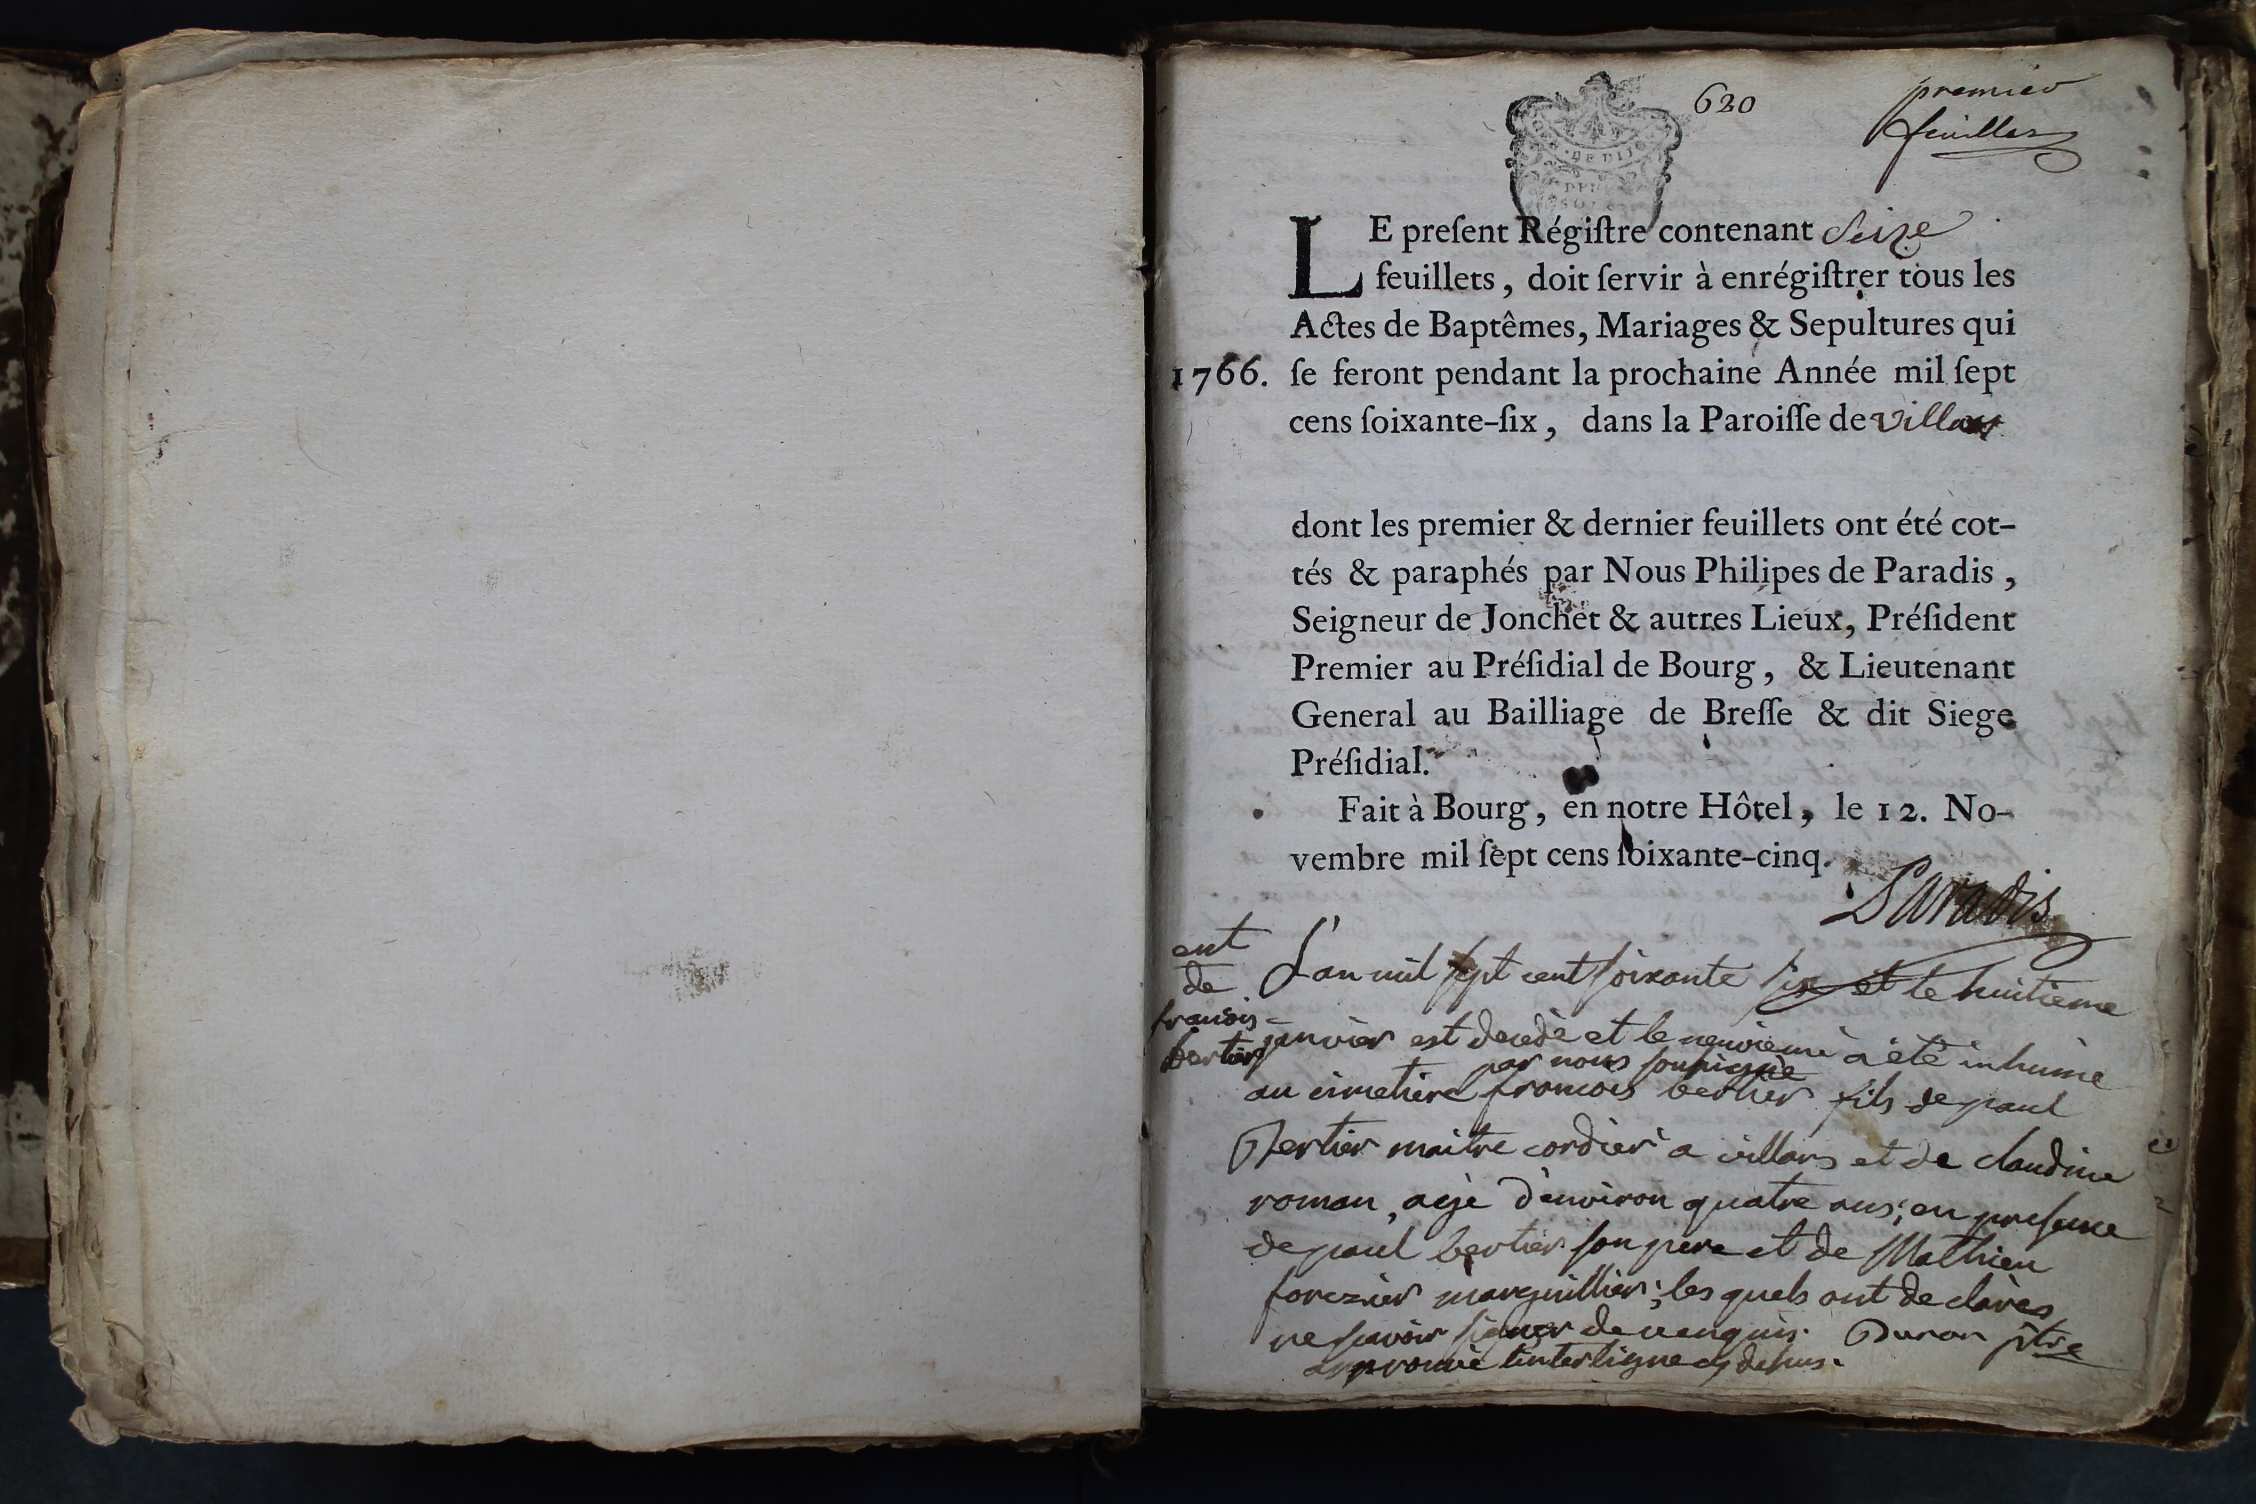 620
premier
feuillet
DE DIJO
LE preſent Régiſtre contenant Seize
feuillets, doit ſervir à enrégiſtrer tous les
Actes de Baptêmes, Mariages & Sepultures qui
1766. ſe feront pendant la prochaine Année mil ſept
cens ſoixante-ſix, dans la Paroiſſe de villars
dont les premier & dernier feuillets ont été cot-
tés & paraphés par Nous Philipes de Paradis,
Seigneur de Jonchet & autres Lieux, Préſident
Premier au Préſidial de Bourg, & Lieutenant
General au Bailliage de Breſſe & dit Siege
Préſidial.
Fait à Bourg, en notre Hôtel, le 12. No-
vembre mil ſept cens ſoixante-cinq.
Paradis
ent
de
fransois
bertier
L'an mil sept cent soixante six et le huitieme
janvier est decedé et le neuvieme a été inhumé
par nous soussigné
au cimetiere francois bertier fils de paul
Bertier maitre cordier a villars et de claudine
roman, agé d'environ quatre ans; en presence
de paul bertier son pere et de Mathieu
forezier marguillier; les quels ont declarés
ne scavoir signer de ce enquis. Duron ptre
approuvé l'interligne cy dessus.